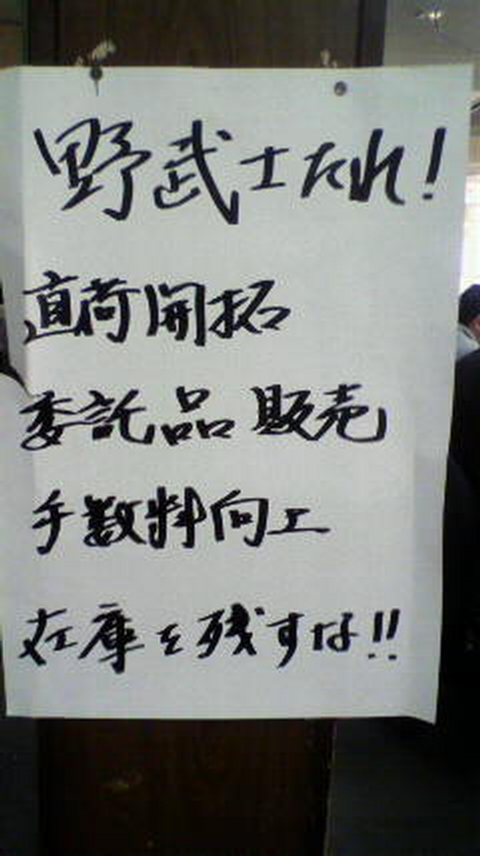 野武士たれ!
直荷開拓
委託品販売
手数料向上
在庫を残すな!!